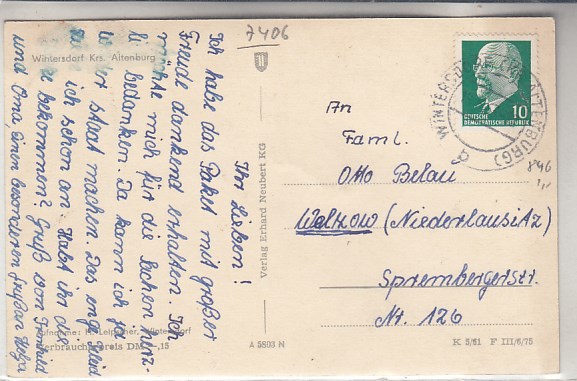 7406
Wintersdorf Krs. Altenburg
Ihr Lieben!
Ich habe das Paket mit großer
Freude dankend erhalten. Ich
möchte mich für die Sachen herz-
li bedanken. Da kann ich ja
wi er staat machen. Das enge Kleid
ich schon an. Habt ihr die
e bekommen? Gruß vom
und Oma, einen besonderen
Verlag Erhard Neubert KG
An
Faml.
Otto Belau
Welzow (Niederlausitz)
Sprembergerstr.
Nr. 126
10
DEUTSCHE
DEMOKRATISCHE REPUBLIK
WINTERSDORF ALTENBURG)
a
Aufnahme: H. Leipziger, Wintersdorf
Verbraucherpreis DM -,15
A 5803 N
K 5/61 F III/6/75